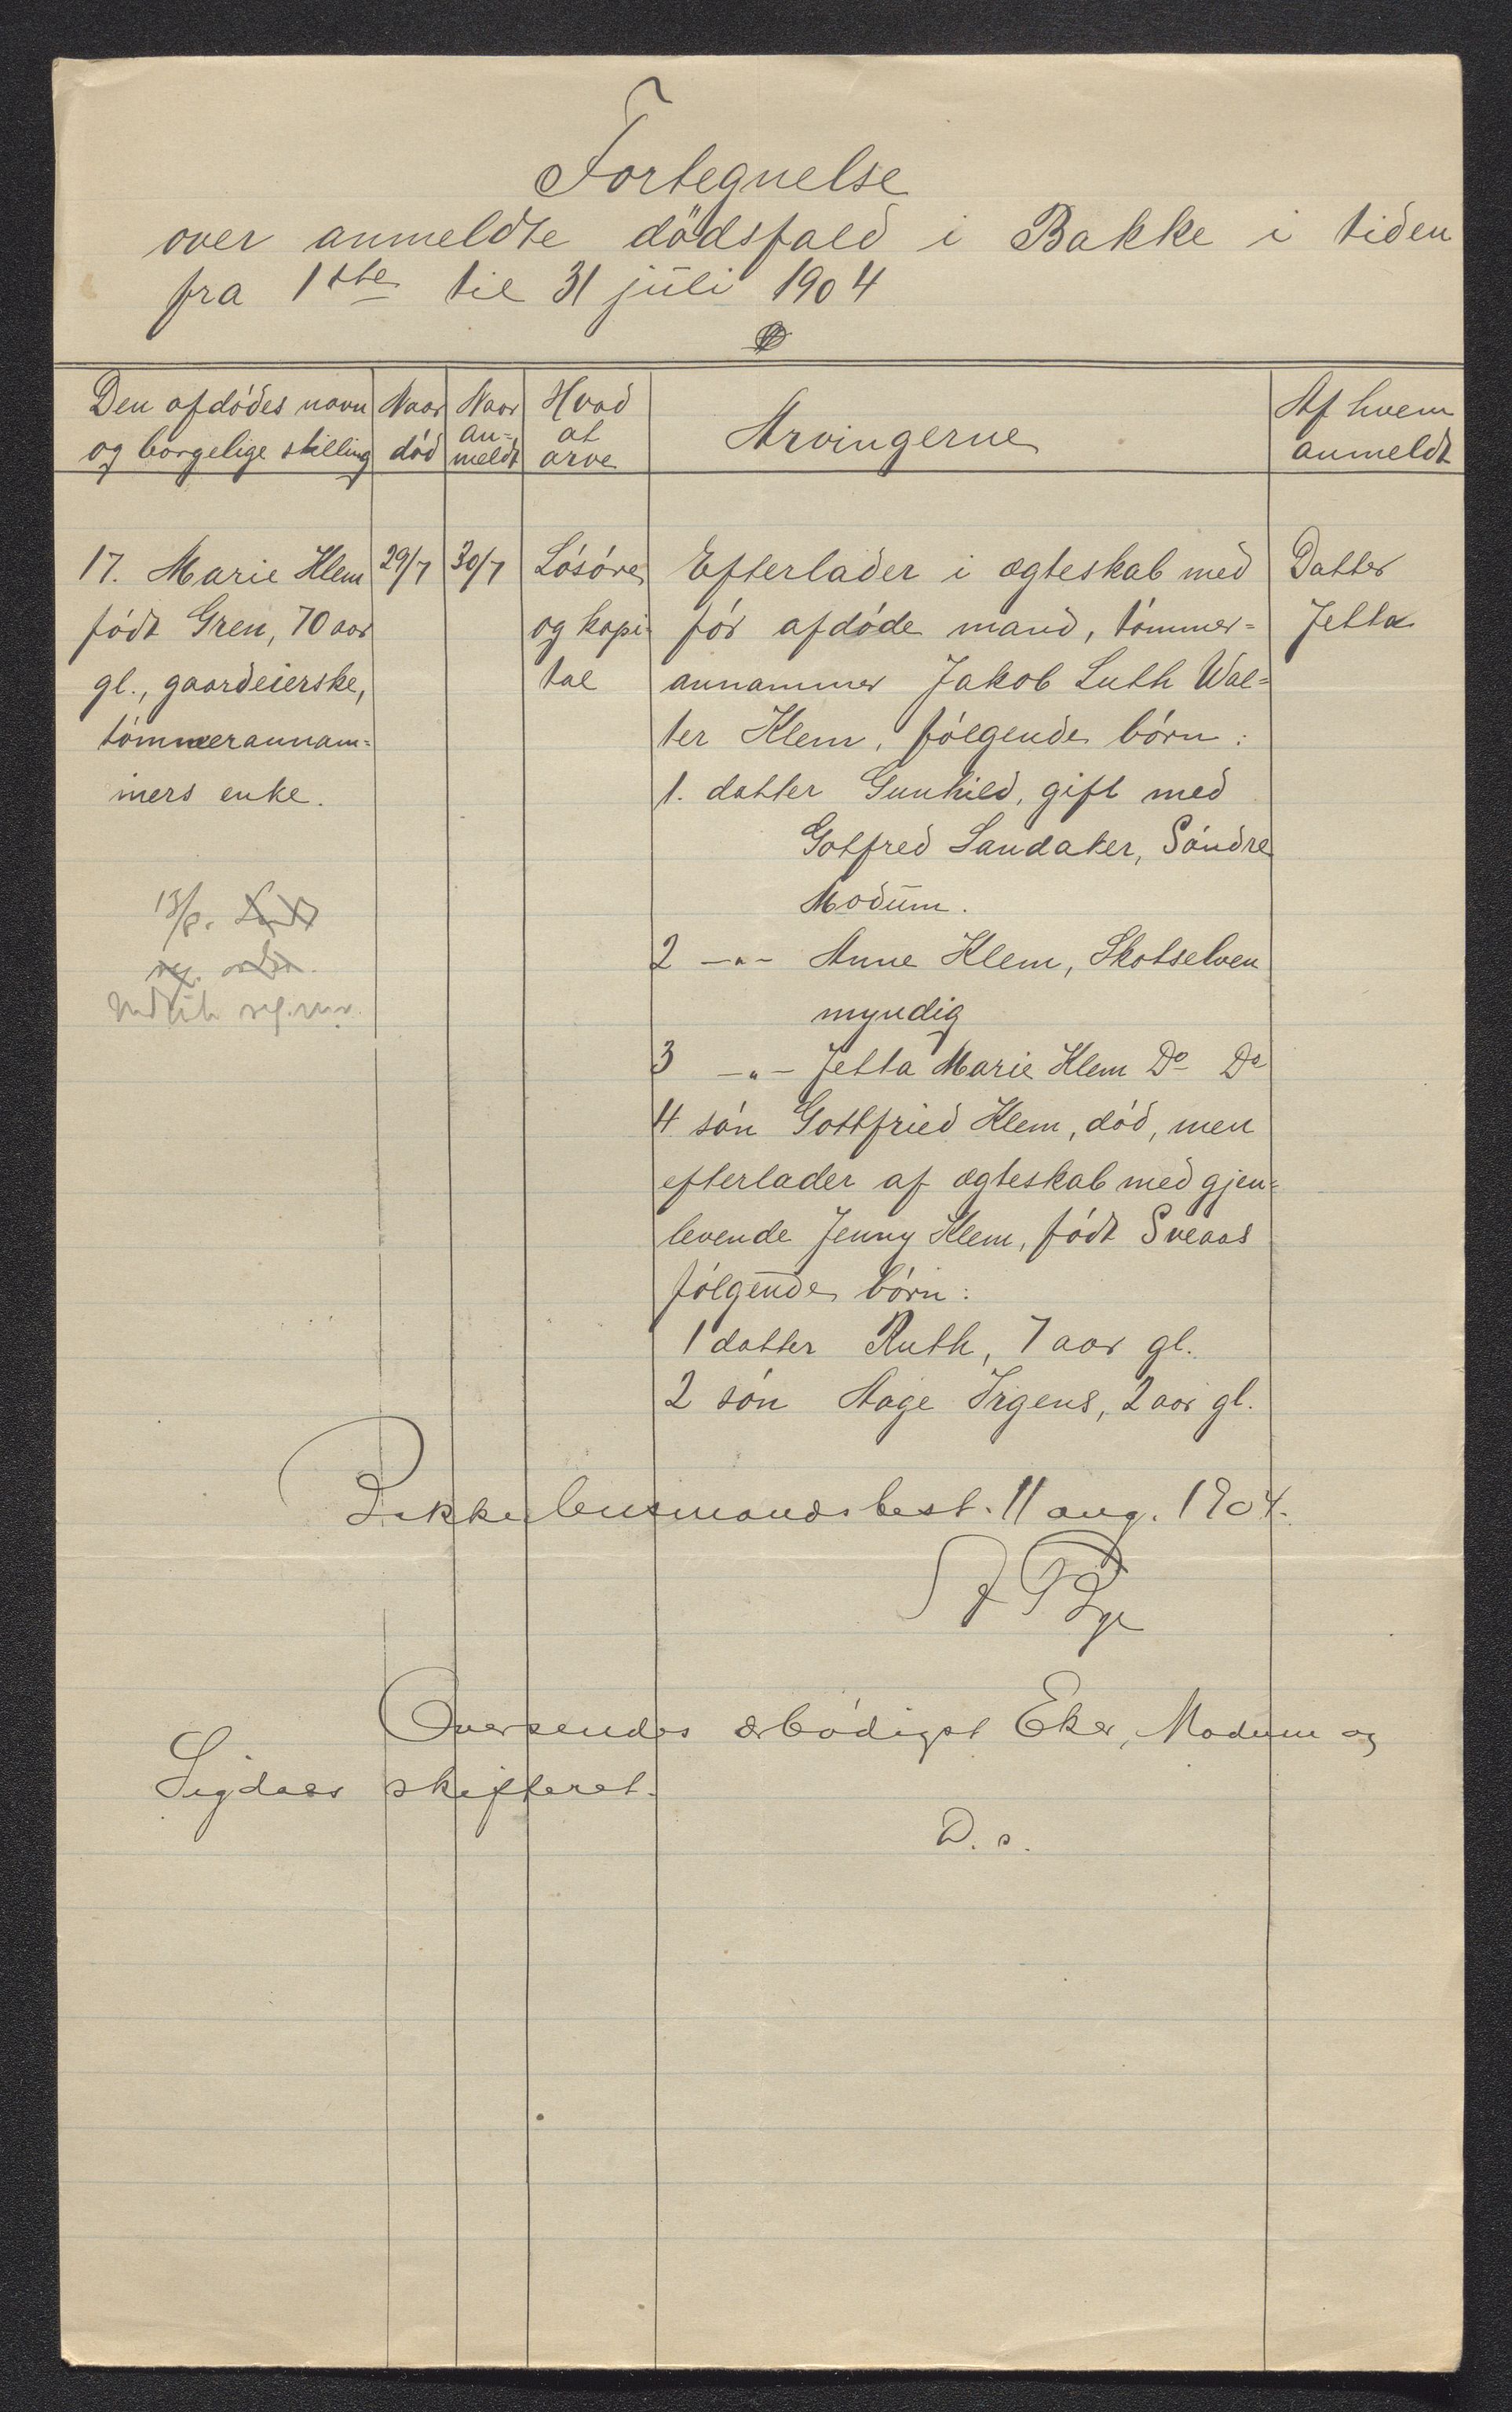 Fortegnelse
over anmeldte dödsfald i Bakke i tiden
fra 1ste til 31 juli 1904
Den afdødes navn og borgelige stilling
Naar død
Naar an=meldt
Hvad at arve
Arvingerne
Af hvem anmeldt
17. Marie Klem
født Gren, 70 aar
gl., gaardeierske,
tømmerannam=
mers enke.
29/7
30/7
Løsøre
og kapi-
tal
Efterlader i ægteskab med
før afdøde mand, tømmer=
annammer Jakob Luth Wal=
ter Klem, følgende børn:
1. datter Gunhild, gift med
Gotfred Sandaker, Søndre
Modum.
2 -"- Anne Klem, Skotselven
myndig
3 -"- Jetta Marie Klem Do Do
4 søn Gottfried Klem, død, men
efterlader af ægteskab med gjen=
levende Jenny Klem, født Sveaas
følgende børn:
1 datter Ruth, 7 aar gl.
2 søn Aage Irgens, 2 aar gl.
Datter
Jetta
13/8.
Bakke lensmandsbest. 11 aug. 1904.
Oversendes ærbødigst Eker, Modum og
Sigdals skifteret.
D. s.